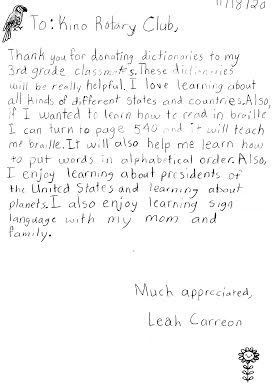 11/18/20
To: Kino Rotary Club,
Thank you for donating dictionaries to my
3rd grade classmates. These dictionaries
will be really helpful. I love learning about
all kinds of different states and countries. Also,
if I wanted to learn how to read in braille
I can turn to page 540 and it will teach
me braille. It will also help me learn how
to put words in alphabetical order. Also,
I enjoy learning about presidents of
the United States and learning about
planets. I also enjoy learning sign
language with my mom and
family.
Much appreciated,
Leah Carreon